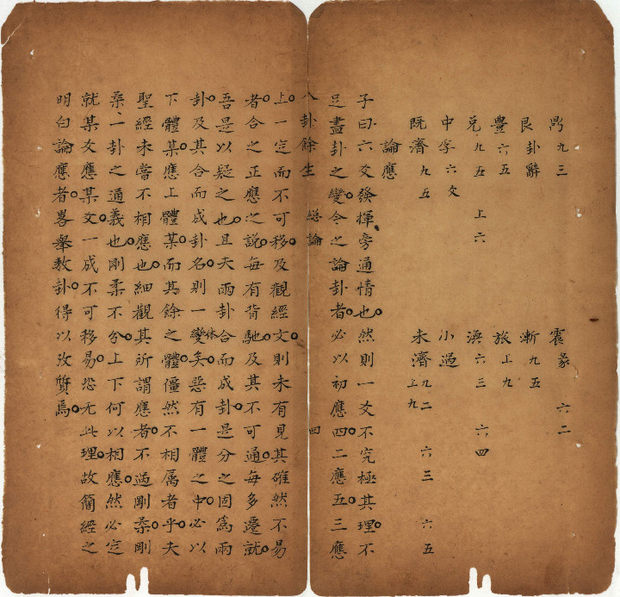 鼎九三 震彖 六二
艮卦辭 漸九五
豐六五 旅上九
兌九五 上六 渙六三 六四
中孚六爻 小過
既濟九五 未濟九二 六三 六五 上九
論應
子曰六爻發揮旁通情也然則一爻不究極其理不
足盡卦之變今之論卦者必以初應四二應五三應
八卦餘生 總論 四
上一定而不可移及觀經文則未有見其確然不易
者合之正應之說每有背馳及其不可通每多遷就
吾是以疑之也且夫兩卦合而成卦是分之固為兩
卦及其合而成卦名則一體變矣惡有一體之中必以
下體某應上體某而其餘之體僵然不相屬者乎夫
聖經未嘗不相應也細觀其所謂應者不過剛柔剛
柔一卦之通義也剛柔不分上下何以相應然必定
就某爻應某爻一成不可移易恐无此理故簡經之
明白論應者畧舉數卦得以攷質焉